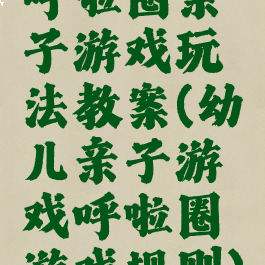 呼啦圈亲
子游戏玩
法教案(幼
儿亲子游
戏呼啦圈
游戏规则)